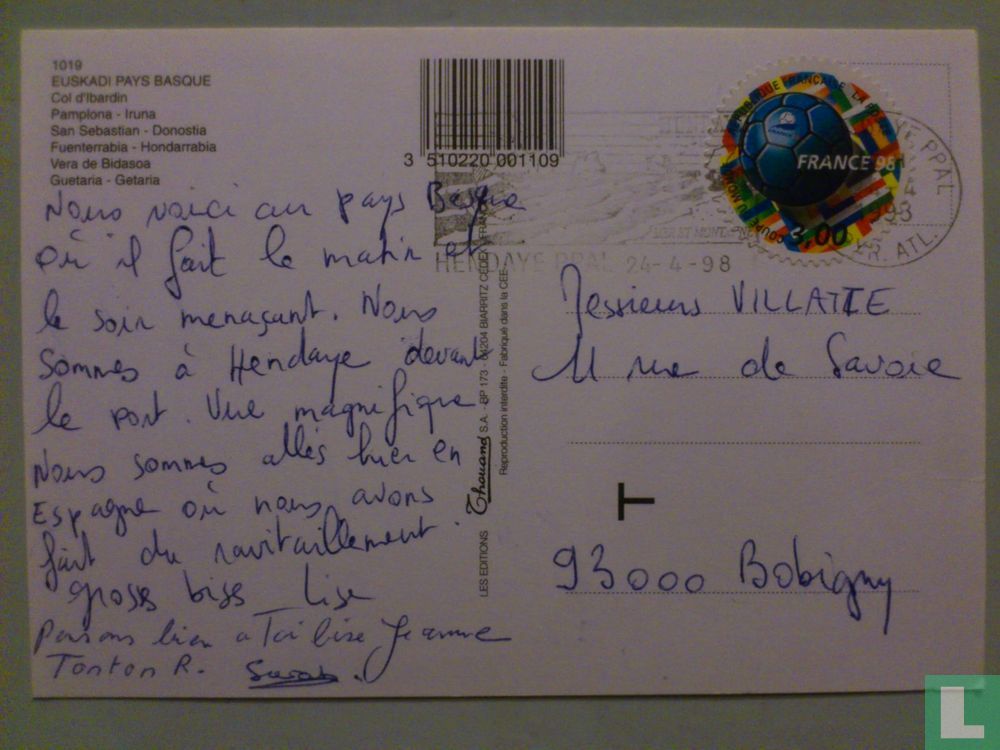 1019
EUSKADI PAYS BASQUE
Col d'Ibardin
Pamplona - Iruna
San Sebastian - Donostia
Fuenterrabia - Hondarrabia
Vera de Bidasoa
Guetaria - Getaria
3 510220 001109
FRANCE 98
3,00
COUPE DU MONDE
HENDAYE PPAL 24-4-98
PPAL
ATL.
Nous voici au pays Basque
où il fait le matin et
le soir menaçant. Nous
sommes à Hendaye devant
le port. Vue magnifique
Nous sommes allés hier en
Espagne où nous avons
fait du ravitaillement.
grosses bises Lise
Pensons bien a Toi bise Jeanne
Tonton R. Sarah.
LES EDITIONS Thouand S.A. - BP 173 - 64204 BIARRITZ CEDEX FRANCE
Reproduction interdite - Fabriqué dans la CEE
Messieurs VILLATTE
11 rue de Savoie
T
93000 Bobigny
L